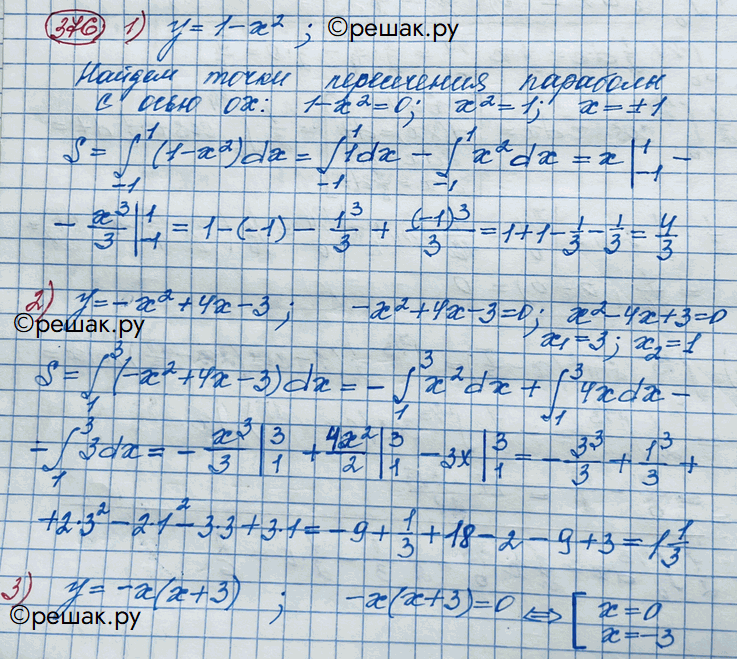 376 1) y = 1 - x² ; ©решак.ру
Найдем точки пересечения параболы
с осью ox: 1 - x² = 0; x² = 1; x = ±1
S = ∫₋₁¹ (1 - x²) dx = ∫₋₁¹ 1 dx - ∫₋₁¹ x² dx = x |₋₁¹ -
- x³/3 |₋₁¹ = 1 - (-1) - 1³/3 + (-1)³/3 = 1 + 1 - 1/3 - 1/3 = 4/3
2) y = -x² + 4x - 3 ; -x² + 4x - 3 = 0; x² - 4x + 3 = 0
©решак.ру x₁ = 3; x₂ = 1
S = ∫₁³ (-x² + 4x - 3) dx = - ∫₁³ x² dx + ∫₁³ 4x dx -
- ∫₁³ 3 dx = - x³/3 |₁³ + 4x²/2 |₁³ - 3x |₁³ = - 3³/3 + 1³/3 +
+ 2·3² - 2·1² - 3·3 + 3·1 = -9 + 1/3 + 18 - 2 - 9 + 3 = 1 1/3
3) y = -x(x + 3) ; -x(x + 3) = 0 ⇔ [ x = 0
©решак.ру x = -3